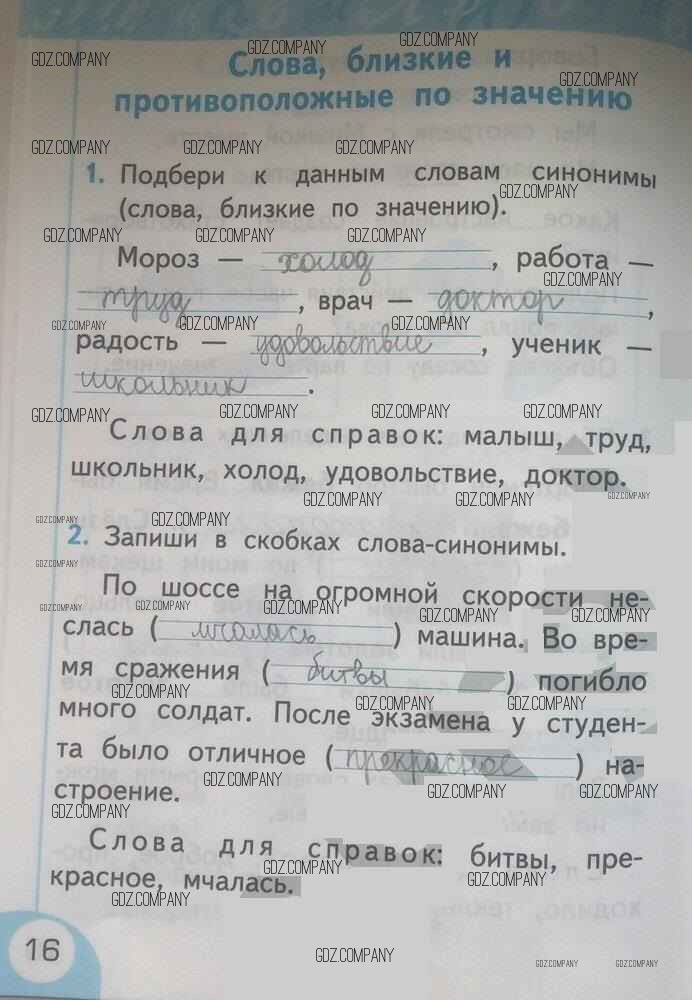 Слова, близкие и
противоположные по значению
1. Подбери к данным словам синонимы
(слова, близкие по значению).
Мороз — холод, работа —
труд, врач — доктор,
радость — удовольствие, ученик —
школьник.
Слова для справок: малыш, труд,
школьник, холод, удовольствие, доктор.
2. Запиши в скобках слова-синонимы.
По шоссе на огромной скорости не-
слась (мчалась) машина. Во вре-
мя сражения (битвы) погибло
много солдат. После экзамена у студен-
та было отличное (прекрасное) на-
строение.
Слова для справок: битвы, пре-
красное, мчалась.
16
GDZ.COMPANY